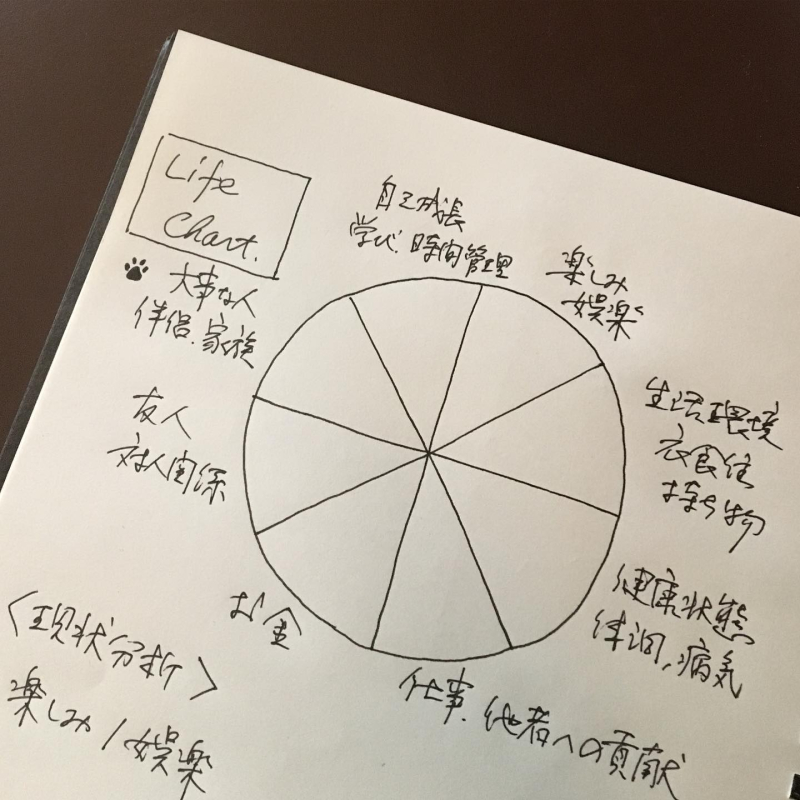 Life
Chart.
自己成長
学び.時間管理
楽しみ
娯楽
生活環境
衣食住
持ち物
健康状態
体調,病気
仕事.他者への貢献
お金
友人
対人関係
大事な人
伴侶.家族
〈現状分析〉
楽しみ/娯楽